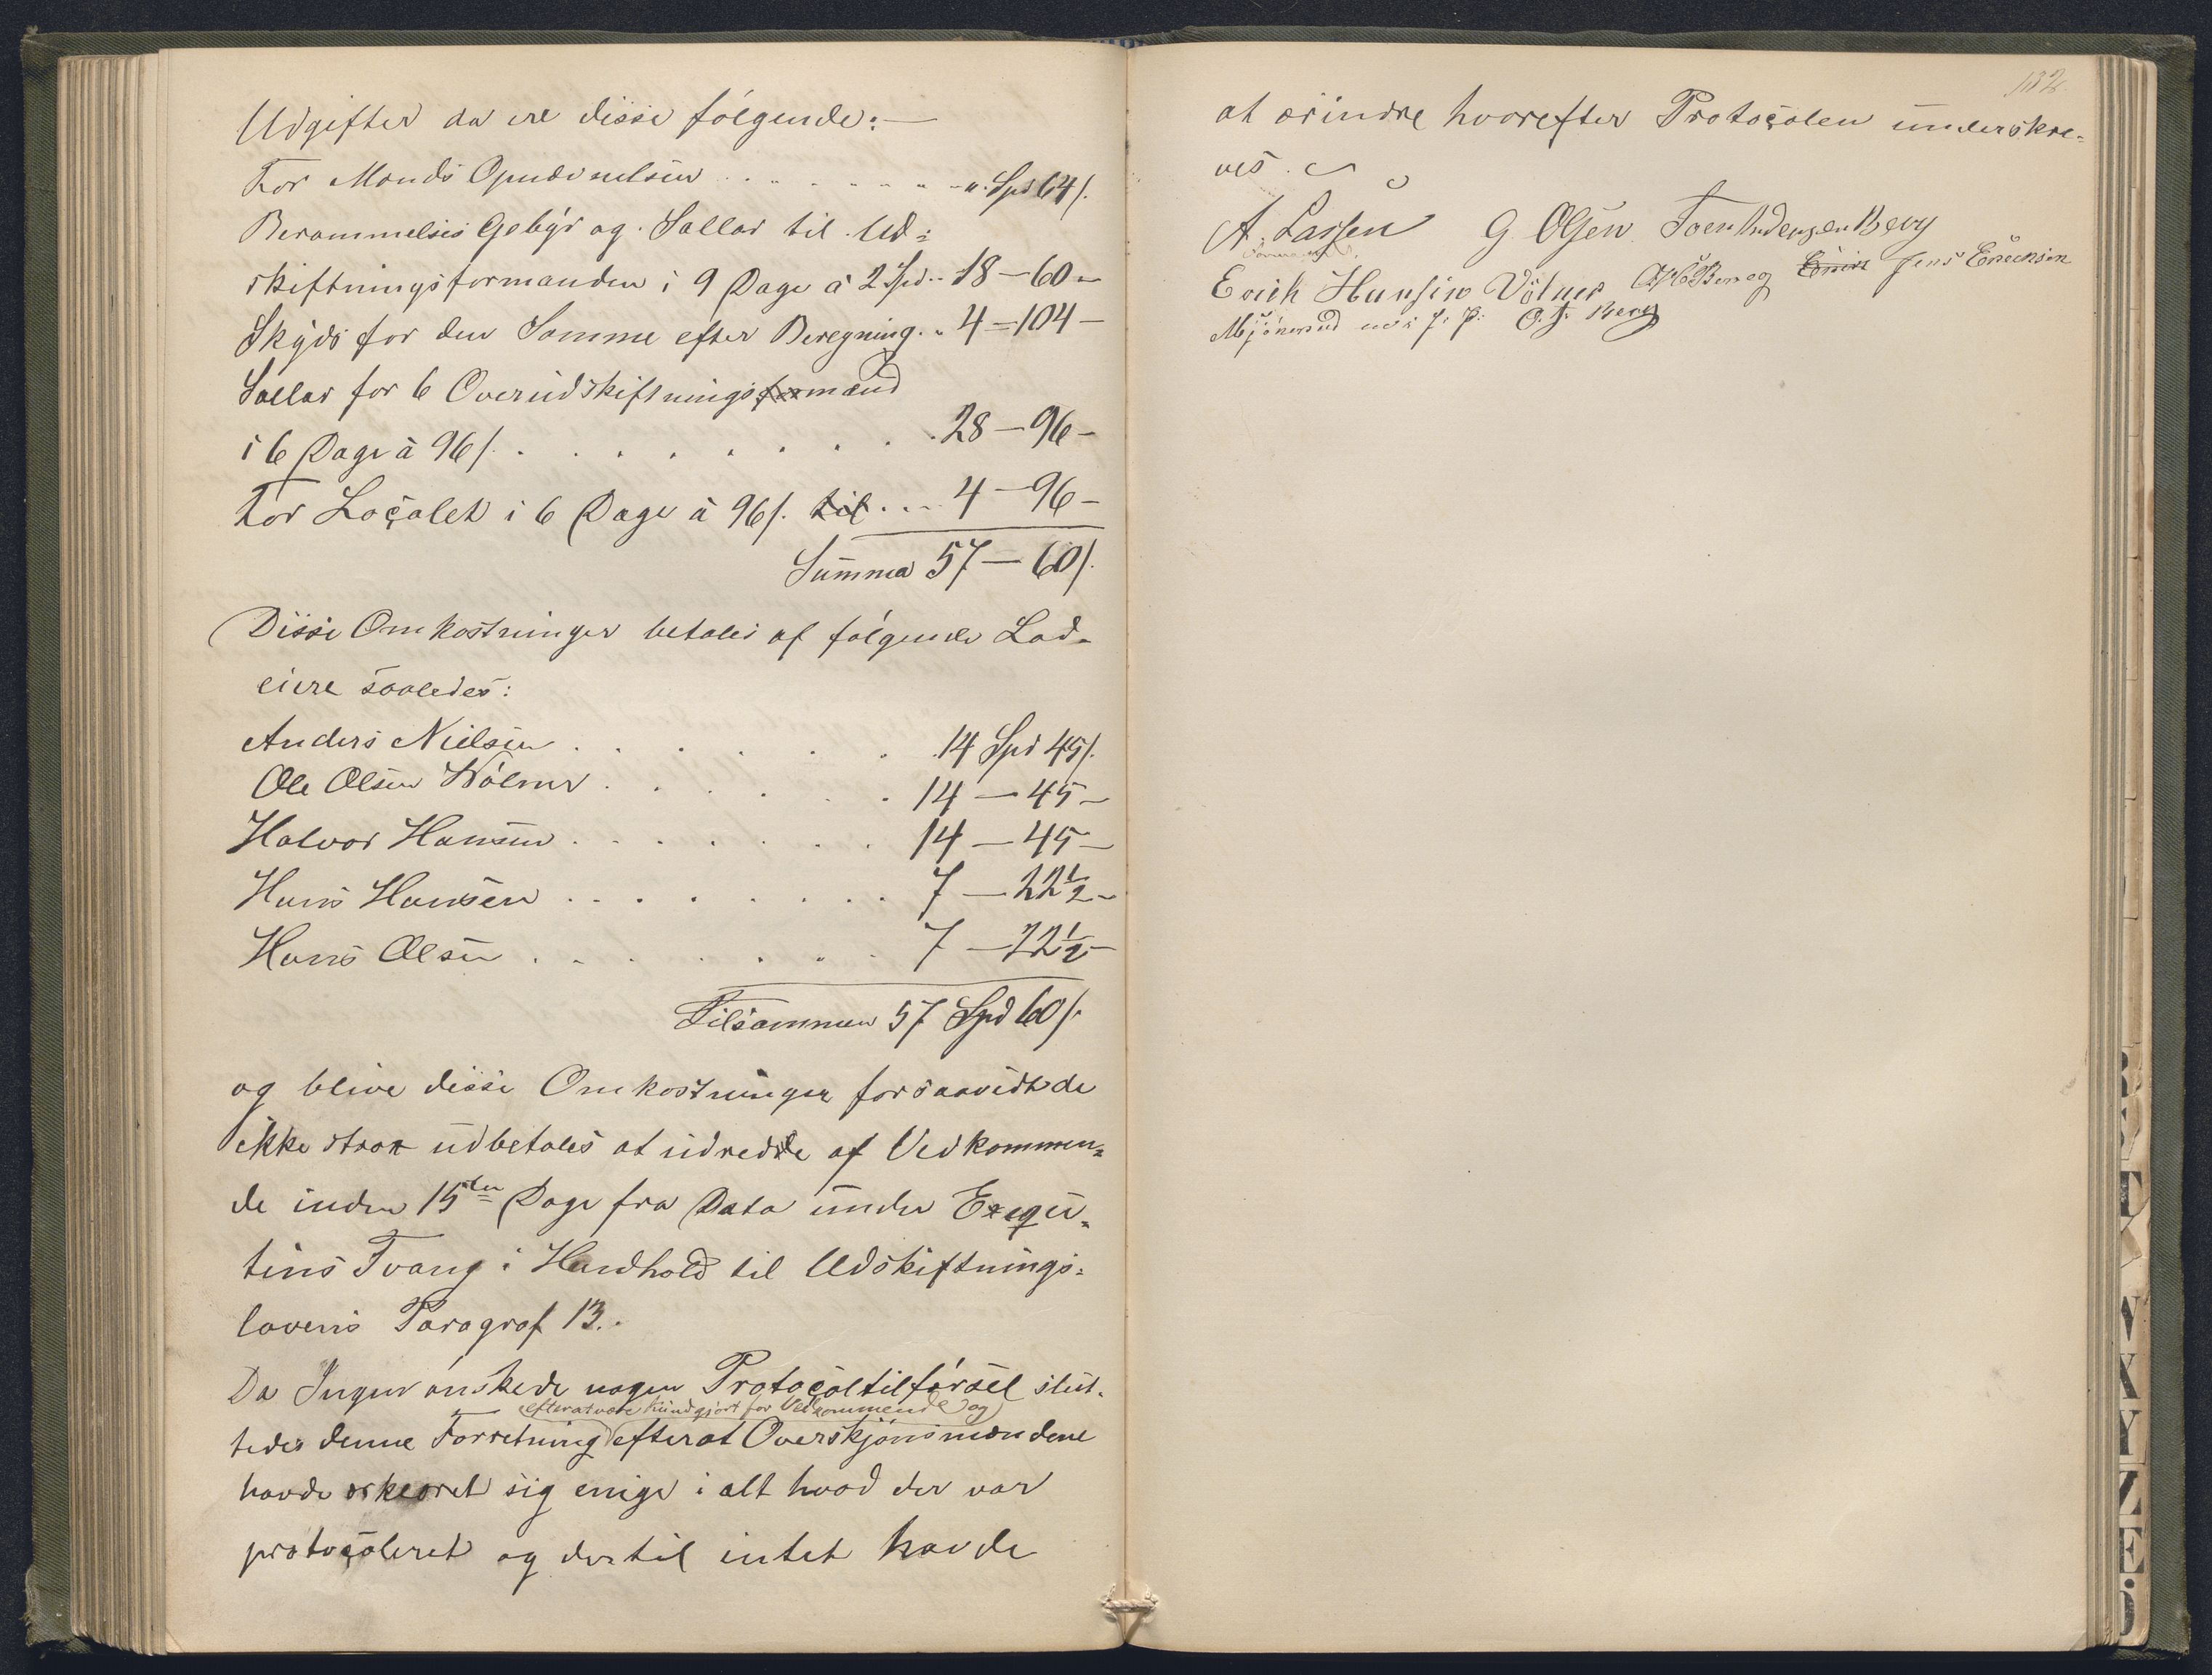 Udgifter da ere disse følgende: —
For Mands Opnævnelsen . . . . . . . . . „ Spd 64 s.
Berammelses Gebyr og Sallar til Ud=
skiftningsformanden i 9 Dage á 2 Spd. . 18 — 60 —
Skyds for den Samme efter Beregning . . 4 — 104 —
Sallar for 6 Overudskiftningsformænd
i 6 Dage á 96 s. . . . . . . . . 28 — 96 —
For Localet i 6 Dage á 96 s. til . . . . 4 — 96 —
Summa 57 — 60 s.
Disse Omkostninger betales af følgende Lod=
eiere saaledes:
Anders Nielsen . . . . . . . 14 Spd 45 s.
Ole Olsen Wølner . . . . . . 14 — 45 —
Halvor Hansen . . . . . . . 14 — 45 —
Hans Hansen . . . . . . . . 7 — 22½ —
Hans Olsen . . . . . . . . 7 — 22½ —
Tilsammen 57 Spd 60 s.
og blive disse Omkostninger forsaavidt de
ikke strax udbetales at udrede af Vedkommen=
de inden 15den Dage fra Dato under Exequ=
tions Tvang i Henhold til Udskiftnings=
lovens Paragraf 13.
Da Ingen ønskede nogen Protocoltilførsel slut=
efter at være kundgjort for Vedkommende og
tedes denne Forretning efterat Overskjønsmændene
havde erklæret sig enige i alt hvad der var
protocoleret og dertil intet havde
132
at erindre hvorefter Protocolen underskre=
ves.
A. Lassen G. Olsen Toer Andersen Berg
Formand
Erich Hansen Völner Jens Ericksen
Mjönerud O. J. Berg